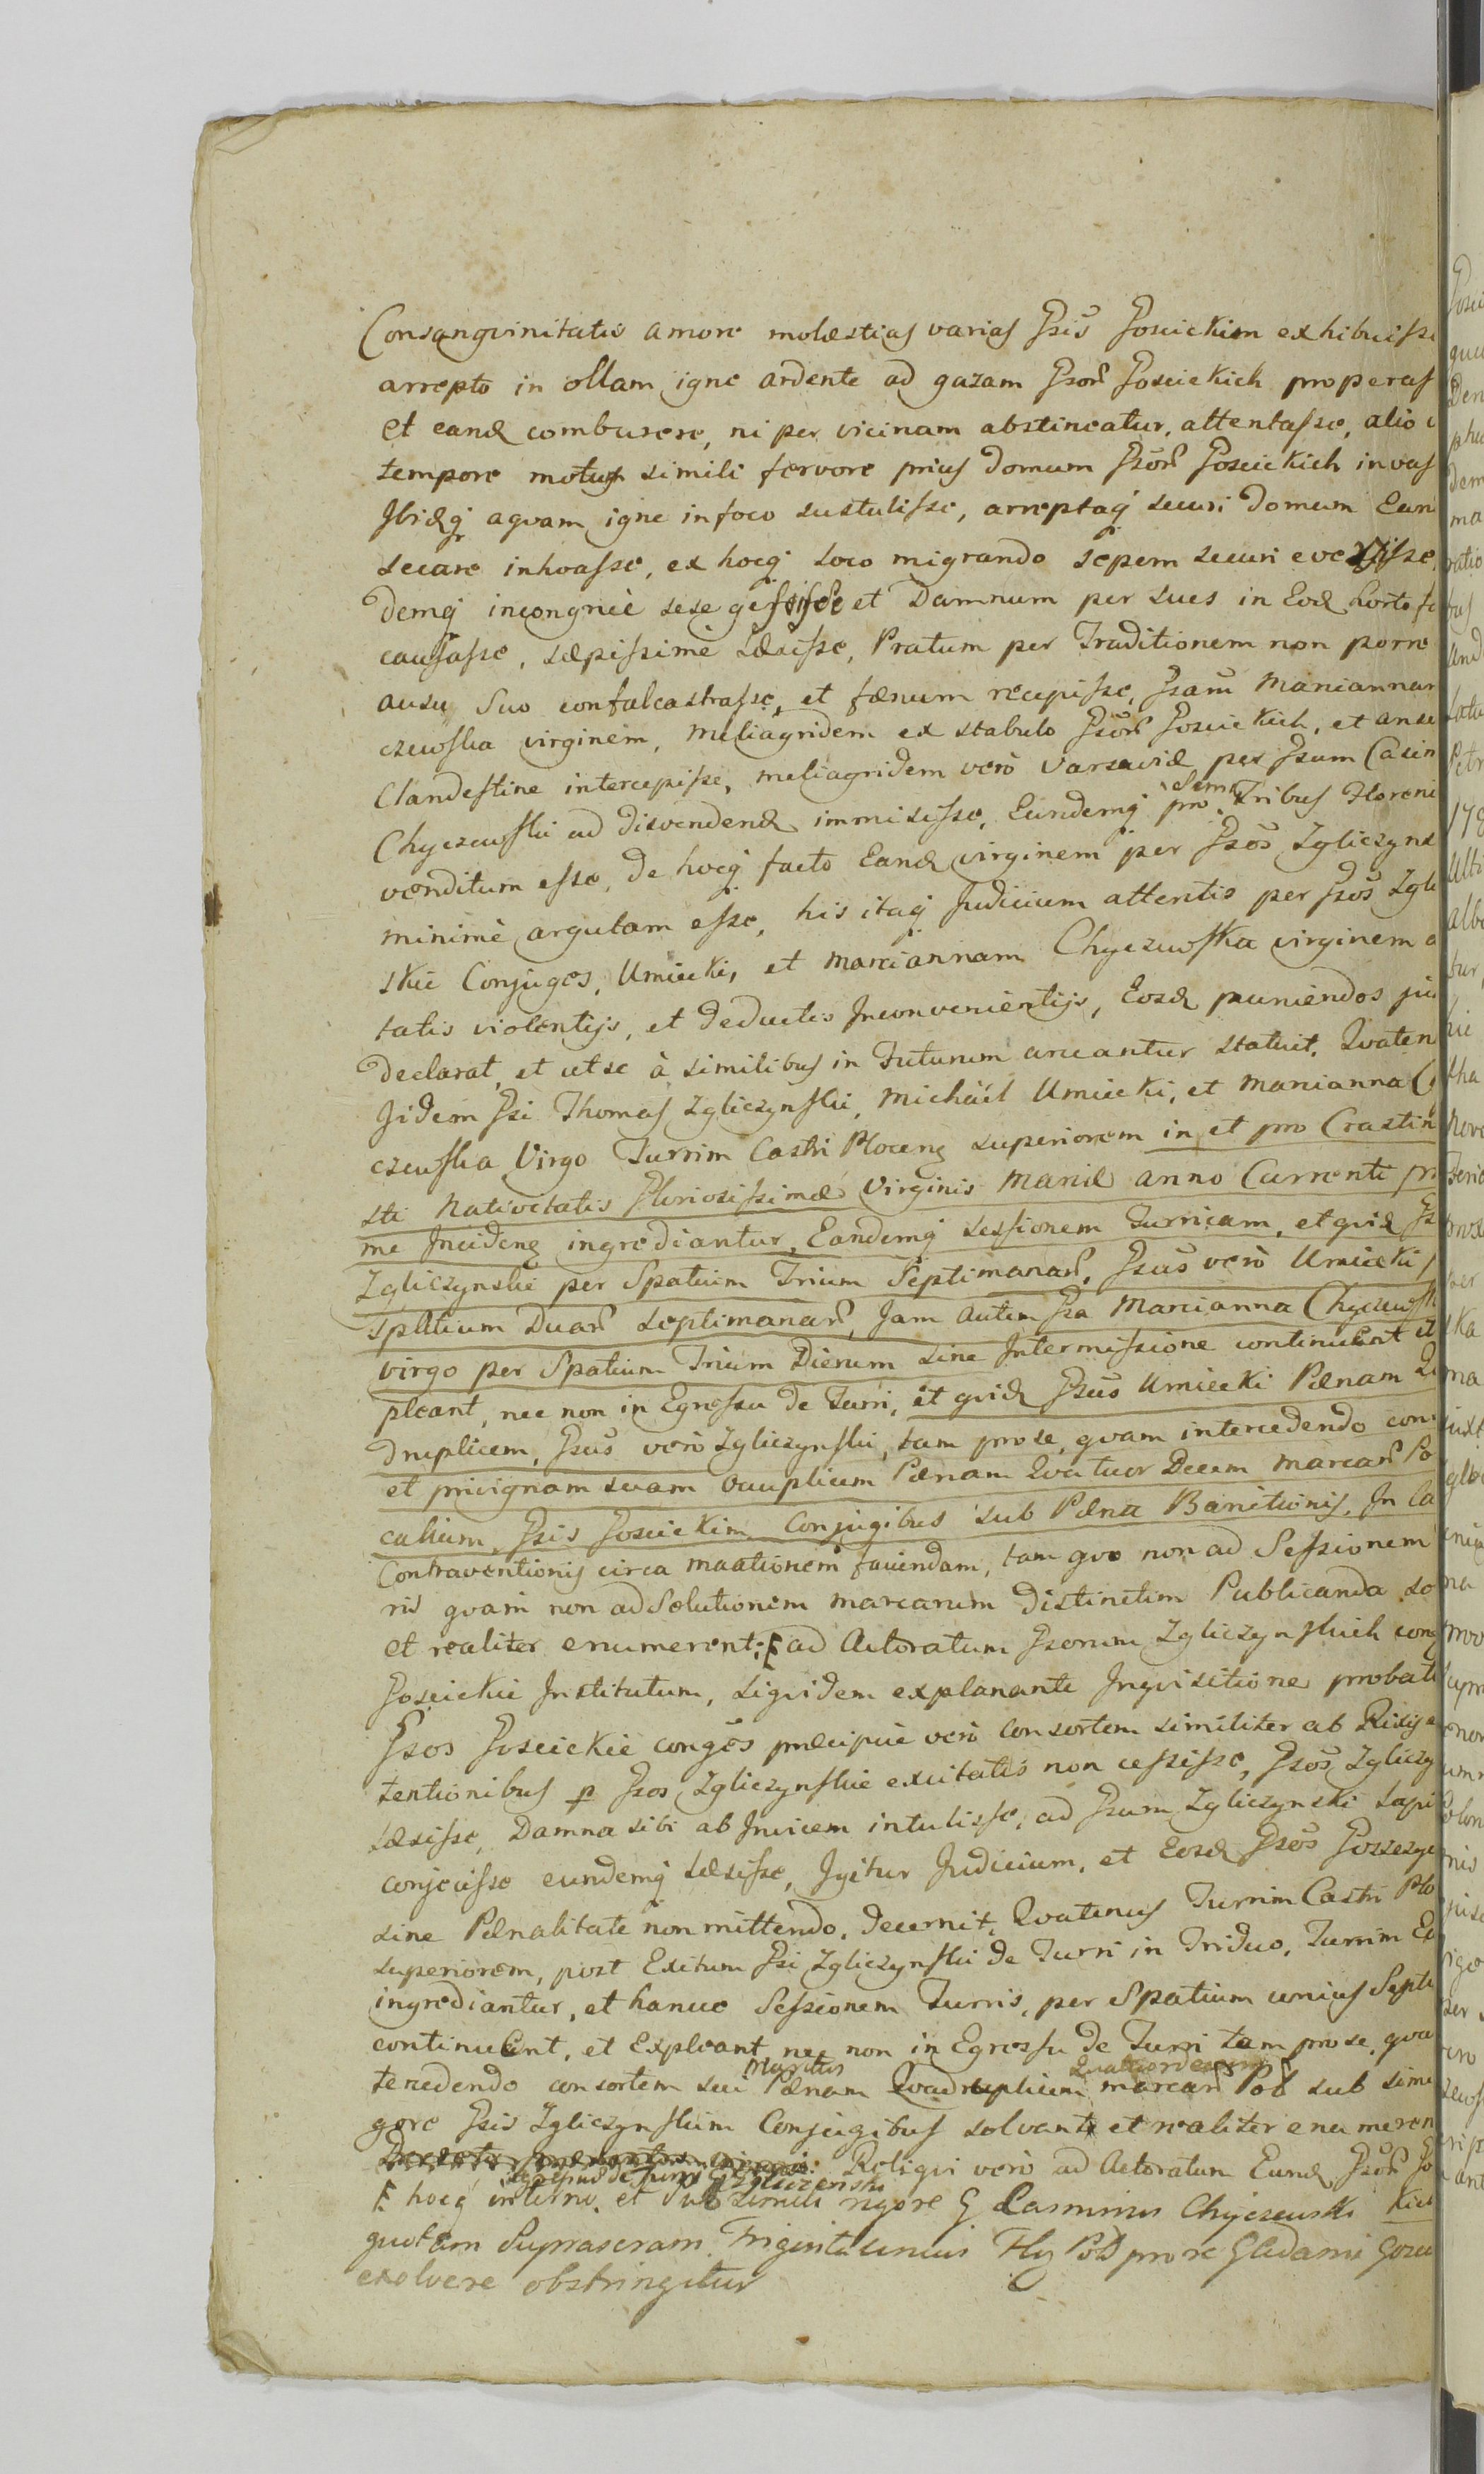 Consangvinitatis amore molæstias varias Gsis Gosciekim exhibuisse
arrepto in ollam igne ardente ad gazam Gsor Gosciekich properas
et eand comburere, ni per vicinam abstineatur, attentasse, alio
tempore motus simili fervore prius domum Gsor Gosciekich invas
Ibidq aqvam igne in foco sustulisse, arreptaq securi domum Ean
secare inhoasse, ex hocq loco migrando sepem securi evertisse
demq incongruè sese gessisse et Damnum per sues in Eod horto
causasse, sæpissimè læsisse, Pratum per Traditionem non porre
ausu Suo confalcastrasse, et fænum recepisse, Gsam Mariannam
czewska virginem, meliagridem ex stabulo Gsor Gosciekich, et anse
Clandestine intercepisse, meliagridem verò Varsaviæ per Gsum Casim
Chyczewski ad disvendend immisisse, Eundemq pro Tribus Floreni
venditum esse, de hocq facto Eand virginem per Gsos Zgliczyns
minimè argutam esse, his itaq Judicium attentis per Gsos Zgli
skie Conjuges, Umiecki, et Mariannam Chyczewska virginem
tatis violentijs, et deductis Inconvenientijs, Eosd puniendos
declarat, et ut se à similibus in Futurum arceantur statuit. Qvaten
Iidem Gsi Thomas Zgliczynski, Michaël Umiecki, et Marianna
czewska Virgo Turrim Castri Plocens superiorem in et pro Crastin
sti Nativitatis Gloriosissimæ Virginis Mariæ anno Currenti
me Inciden ingrediantur, Eandemq sessionem Turricam, et qvid
Zgliczynskie per Spatium Trium Septimanar, Gsus verò Umiecki
spatium Duar septimanar, Jam autem Gsa Marianna Chyczewsk
virgo per Spatium Trium Dierum sine Intermissione continuent et
pleant, nec non in Egressu de Turri, et qvid Gsus Umiecki Pænam
druplicem, Gsus verò Zgliczynski, tam pro se, qvam intercedendo con
et privignam suam ocuplicem Pænam Qvatuor Decem marcar Po
calium, Gsis Gosciekim Conjugibus sub Pæna Banitionis, In Ca
Contraventionis circa mactionem faciendam, tam qvo non ad Sessionem
ris qvam non ad Solutionem marcarum distinctim Publicanda
et realiter enumerent; ad Actoratum Gsorum Zgliczynskich
Gosciekie Institutum, siqvidem explanante Inqvisitione probat
Gsos Gosciekie conges præcipuè verò consortem similiter ab Rixis
tentionibus p Gsos Zgliczynskie excitatis non cessisse, Gsos Zgliczy
Læsisse, Damna sibi ab Invicem intulisse, ad Gsum Zgliczynski lapi
conjecisse eundemq læsisse, Igitur Judicium, et Eosd Gsos
sine Pænalitate non mittendo, decernit, Qvatenus Turrim Castri Plo
superiorem, post Exitum Gsi Zgliczynski de Turri in Triduo, Turrim
ingrediantur, et hancce Sessionem Turris, per Spatium unius Septi
continuent, et Expleant, nec non in Egressu de Turri tam pro se, qva
tercedendo consortem sui Maritus Pænam Quatuordecim marcar Pol sub simi
gore Gsis Zgliczynskim Conjugibus solvant et realiter enumeren
Reliqvi verò ad Actoratum Eund Gsor
hocq interno et sub simili rigore G Casimirus Chyczewski
quotam Supraseram Triginta unius Flg Pol pro re
exolvere obstringitur